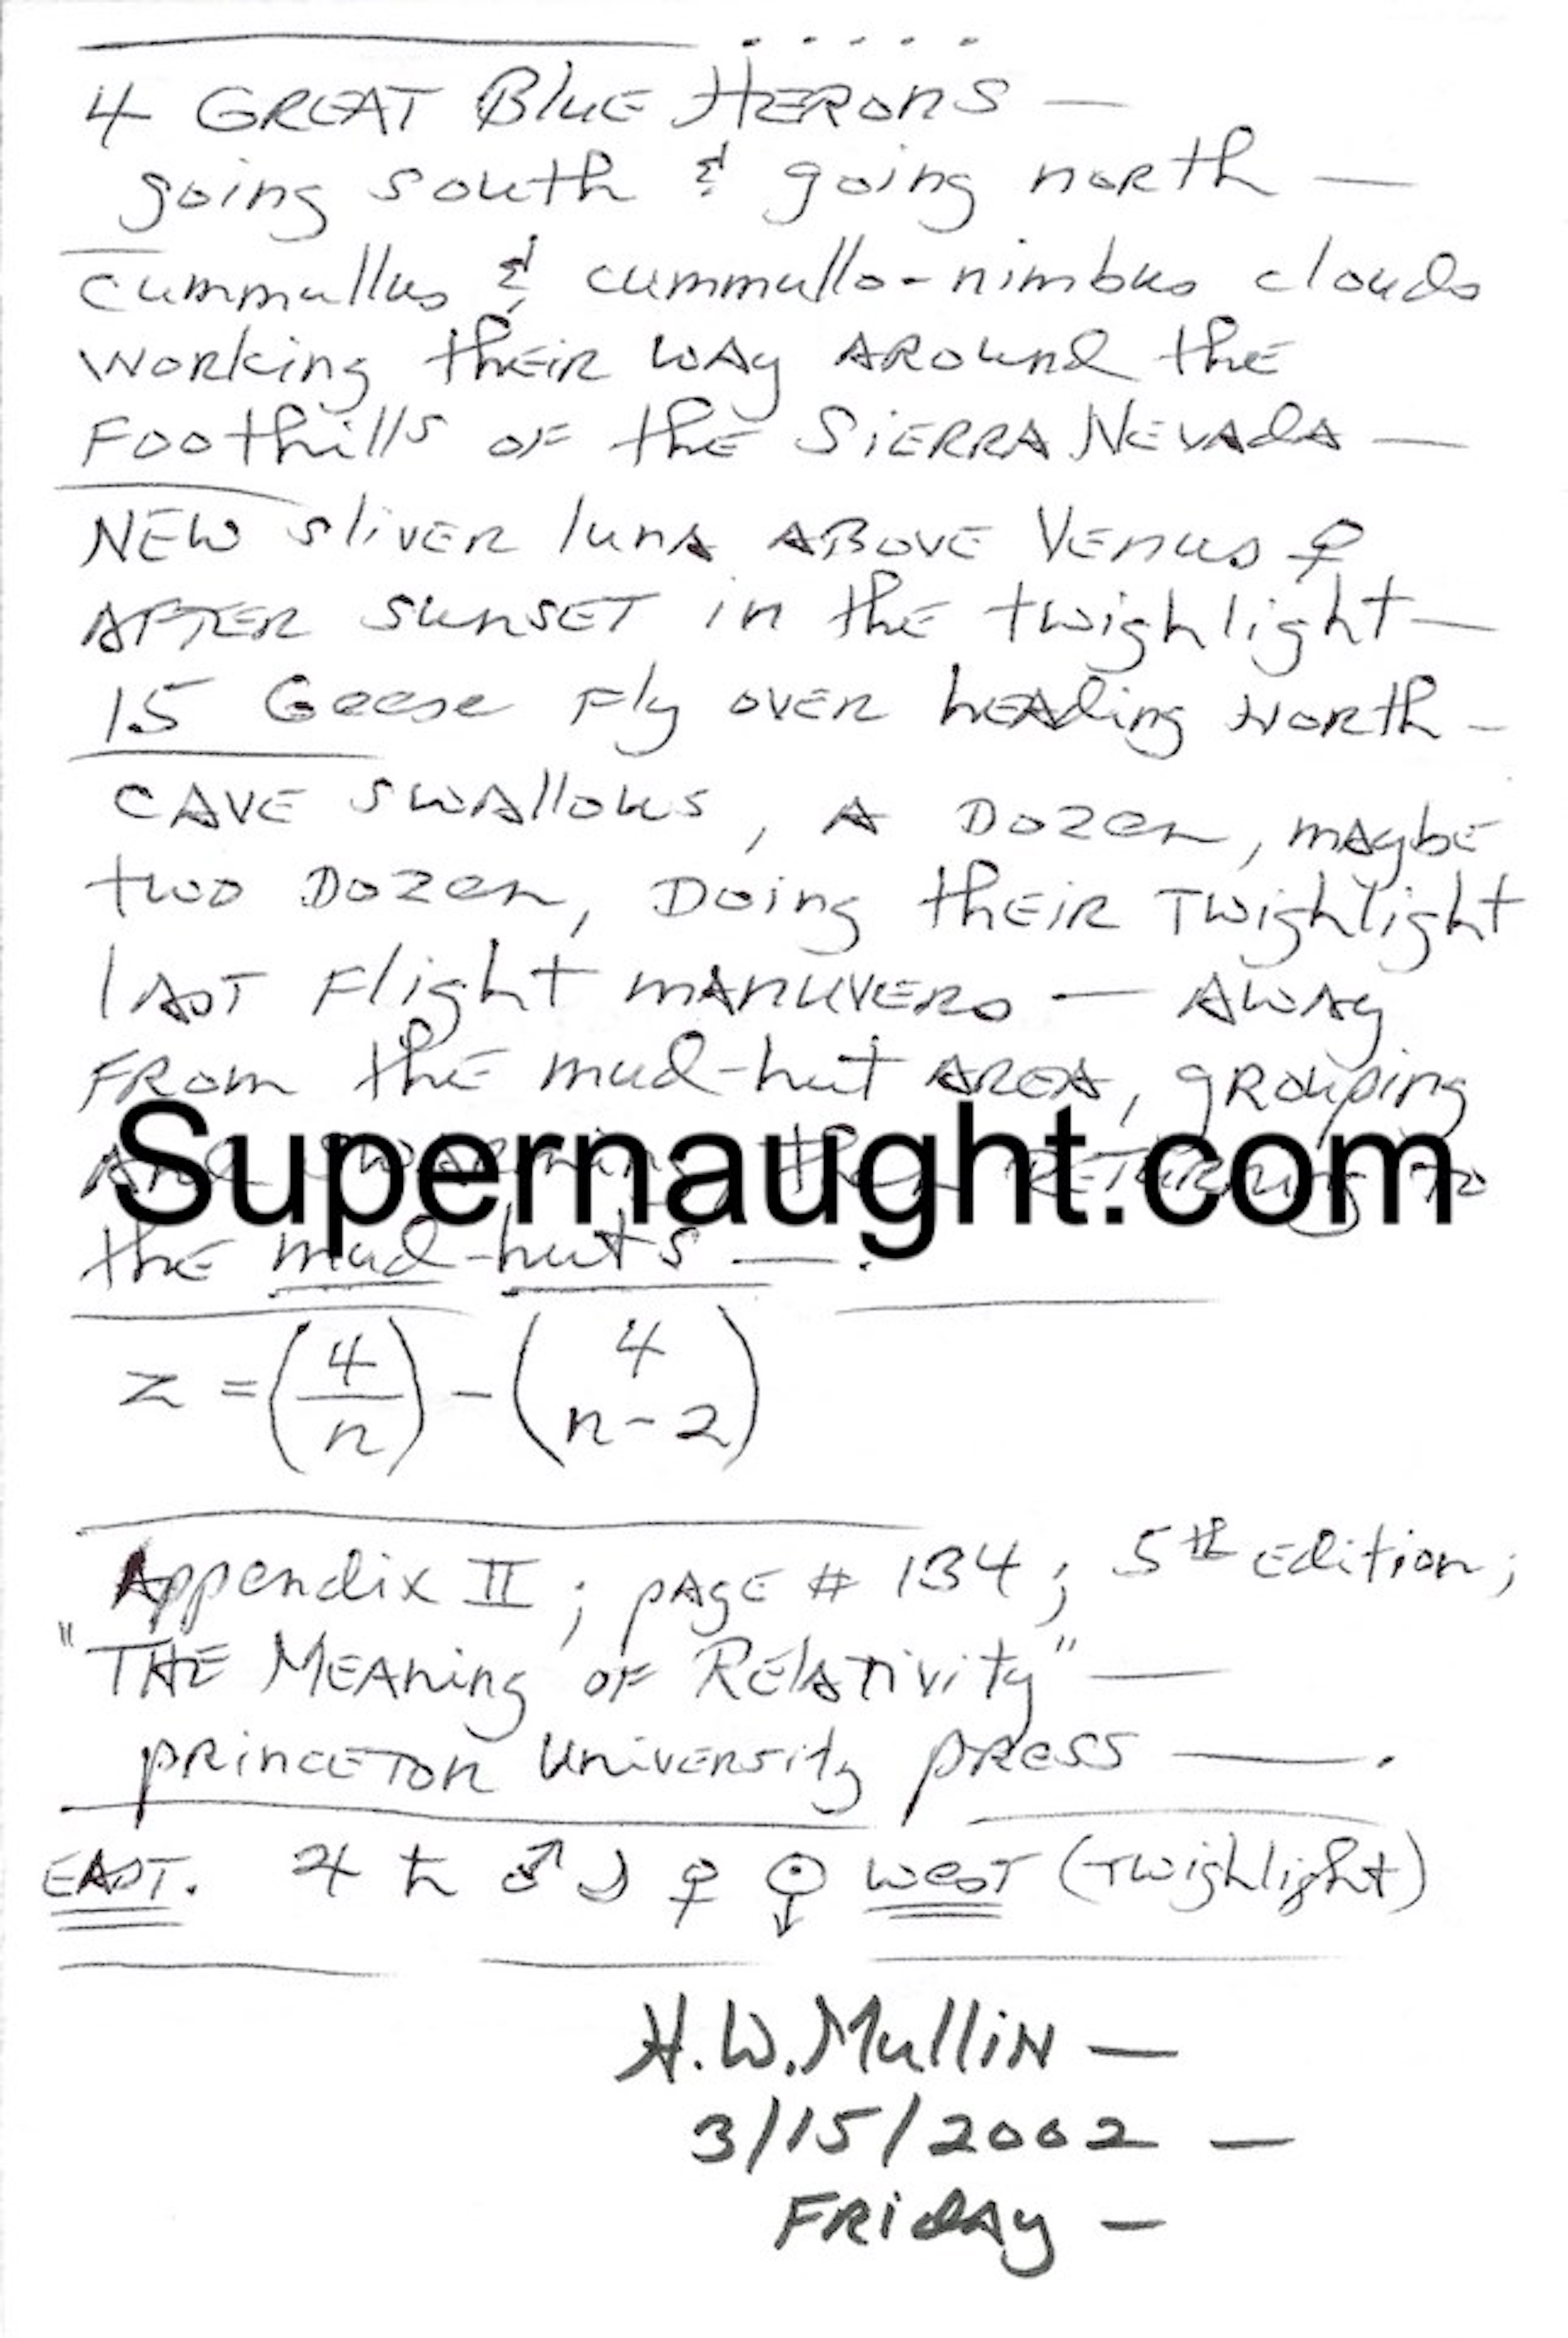 4 GREAT Blue HERONS —
going south & going north —
cummullus & cummullo-nimbus clouds
working their way around the
Foothills of the SIERRA NEVADA —
NEW sliver luna ABOVE Venus ♀
AFTER SUNSET in the twighlight —
15 Geese Fly over heading North —
CAVE swallows, A Dozen, maybe
two Dozen, Doing their Twighlight
last Flight manuvers — Away
From the mud-hut AREA, grouping
and swarming, then RETURNING TO
Supernaught.com
the mud-huts —.
z = (4/n) - (4 n-2)
Appendix II; page # 134; 5th Edition;
"THE Meaning of Relativity" —
Princeton University Press —.
EAST. ♃ ♄ ♂ ☽ ♀ ☉ WEST (Twighlight)
H.W. Mullin —
3/15/2002 —
Friday —